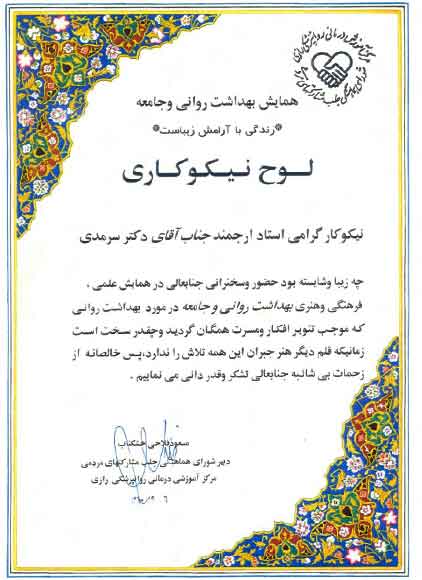 همایش بهداشت روانی وجامعه
*زندگی با آرامش زیباست*
لوح نیکوکاری
نیکوکار گرامی استاد ارجمند جناب آقای دکتر سرمدی
چه زیبا وشایسته بود حضور وسخنرانی جنابعالی در همایش علمی ،
فرهنگی وهنری بهداشت روانی و جامعه در مورد بهداشت روانی
که موجب تنویر افکار ومسرت همگان گردید وچقدر سخت است
زمانیکه قلم دیگر هنر جبران این همه تلاش را ندارد.پس خالصانه از
زحمات بی شائبه جنابعالی تشکر وقدر دانی می نماییم .
مسعود فلاحی خشکناب
دبیر شورای هماهنگی جلب مشارکتهای مردمی
مرکز آموزشی درمانی روانپزشکی رازی